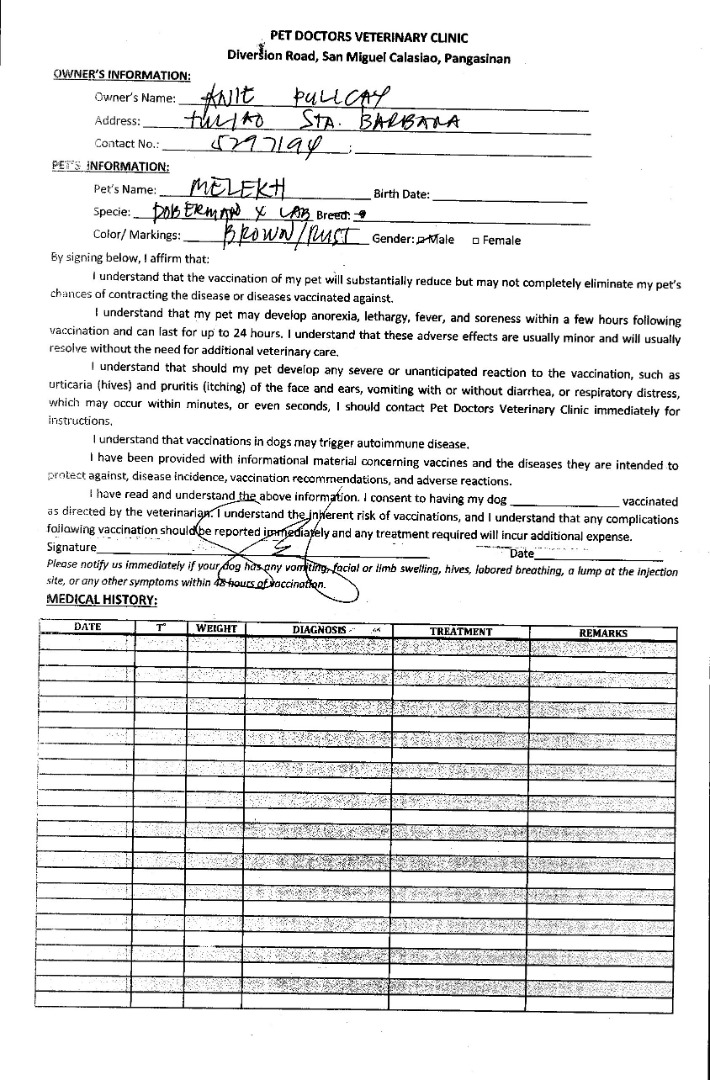 PET DOCTORS VETERINARY CLINIC
Diversion Road, San Miguel Calasiao, Pangasinan
OWNER'S INFORMATION:
Owner's Name: ANIE PULLCAY
Address: TULIAO STA. BARBARA
Contact No.: 5297194 ;
PET'S INFORMATION:
Pet's Name: MELEKH Birth Date:
Specie: DOBERMAN X LAB Breed:
Color/ Markings: BROWN/RUST Gender: Male □ Female
By signing below, I affirm that:
I understand that the vaccination of my pet will substantially reduce but may not completely eliminate my pet's
chances of contracting the disease or diseases vaccinated against.
I understand that my pet may develop anorexia, lethargy, fever, and soreness within a few hours following
vaccination and can last for up to 24 hours. I understand that these adverse effects are usually minor and will usually
resolve without the need for additional veterinary care.
I understand that should my pet develop any severe or unanticipated reaction to the vaccination, such as
urticaria (hives) and pruritis (itching) of the face and ears, vomiting with or without diarrhea, or respiratory distress,
which may occur within minutes, or even seconds, I should contact Pet Doctors Veterinary Clinic immediately for
instructions.
I understand that vaccinations in dogs may trigger autoimmune disease.
I have been provided with informational material concerning vaccines and the diseases they are intended to
protect against, disease incidence, vaccination recommendations, and adverse reactions.
I have read and understand the above information. I consent to having my dog vaccinated
as directed by the veterinarian. I understand the inherent risk of vaccinations, and I understand that any complications
following vaccination should be reported immediately and any treatment required will incur additional expense.
Signature Date
Please notify us immediately if your dog has any vomiting, facial or limb swelling, hives, labored breathing, a lump at the injection
site, or any other symptoms within 48 hours of vaccination.
MEDICAL HISTORY:
DATE T° WEIGHT DIAGNOSIS TREATMENT REMARKS